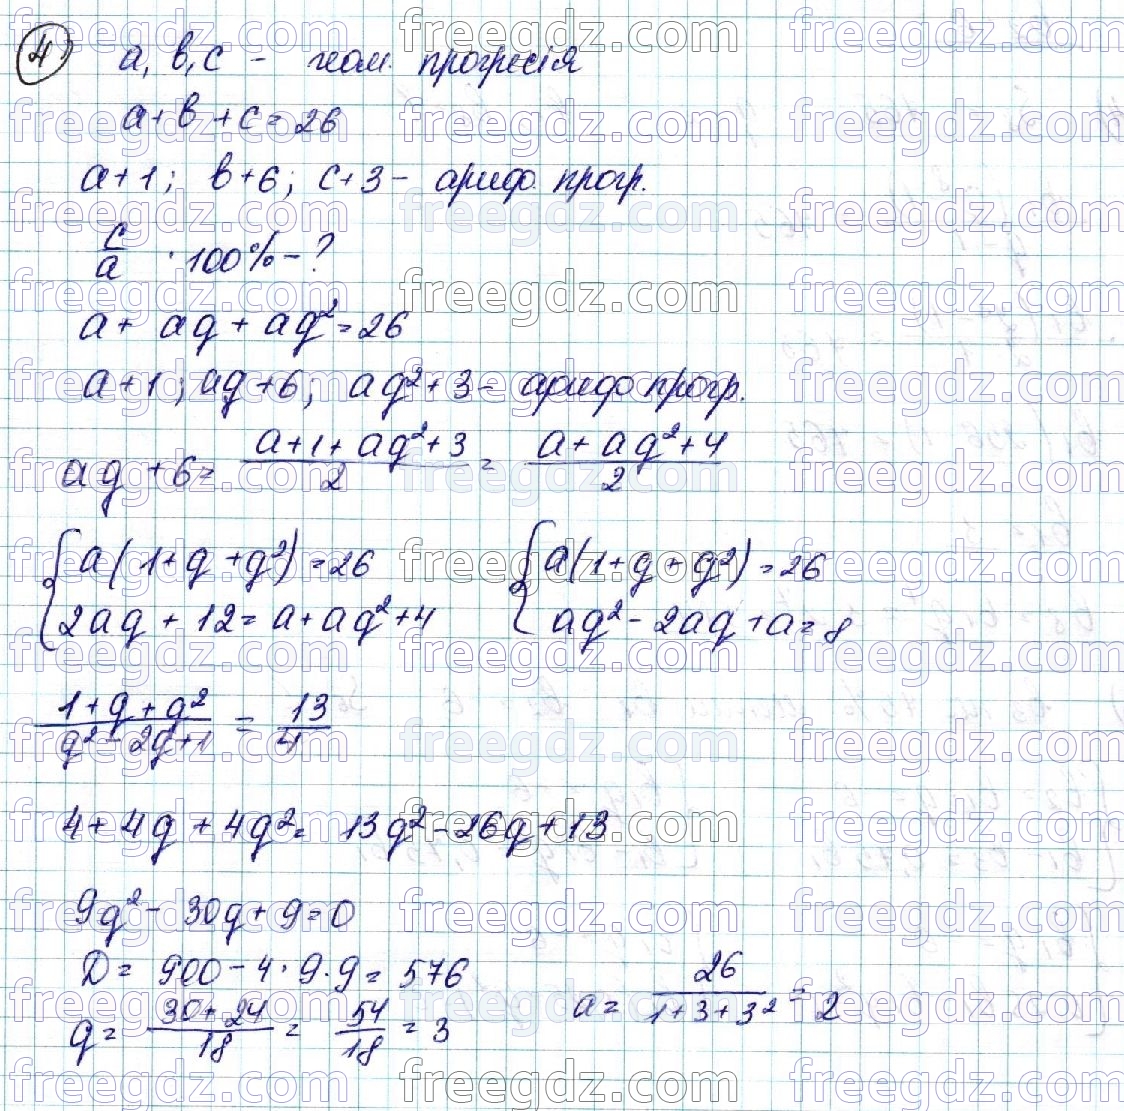 4) a, b, c – геом. прогресія
a + b + c = 26
a+1; b+6; c+3 – ариф. прогр.
c/a · 100% – ?
a + aq + aq² = 26
a+1; aq+6; aq²+3 – ариф прогр.
aq + 6 = (a+1+aq²+3)/2 = (a+aq²+4)/2
{ a(1+q+q²) = 26 { a(1+q+q²) = 26
2aq + 12 = a + aq² + 4 aq² – 2aq + a = 8
(1+q+q²)/(q²–2q+1) = 13/4
4 + 4q + 4q² = 13q² – 26q + 13
9q² – 30q + 9 = 0
D = 900 – 4 · 9 · 9 = 576
q = (30+24)/18 = 54/18 = 3 a = 26/(1+3+3²) = 2
freegdz.com